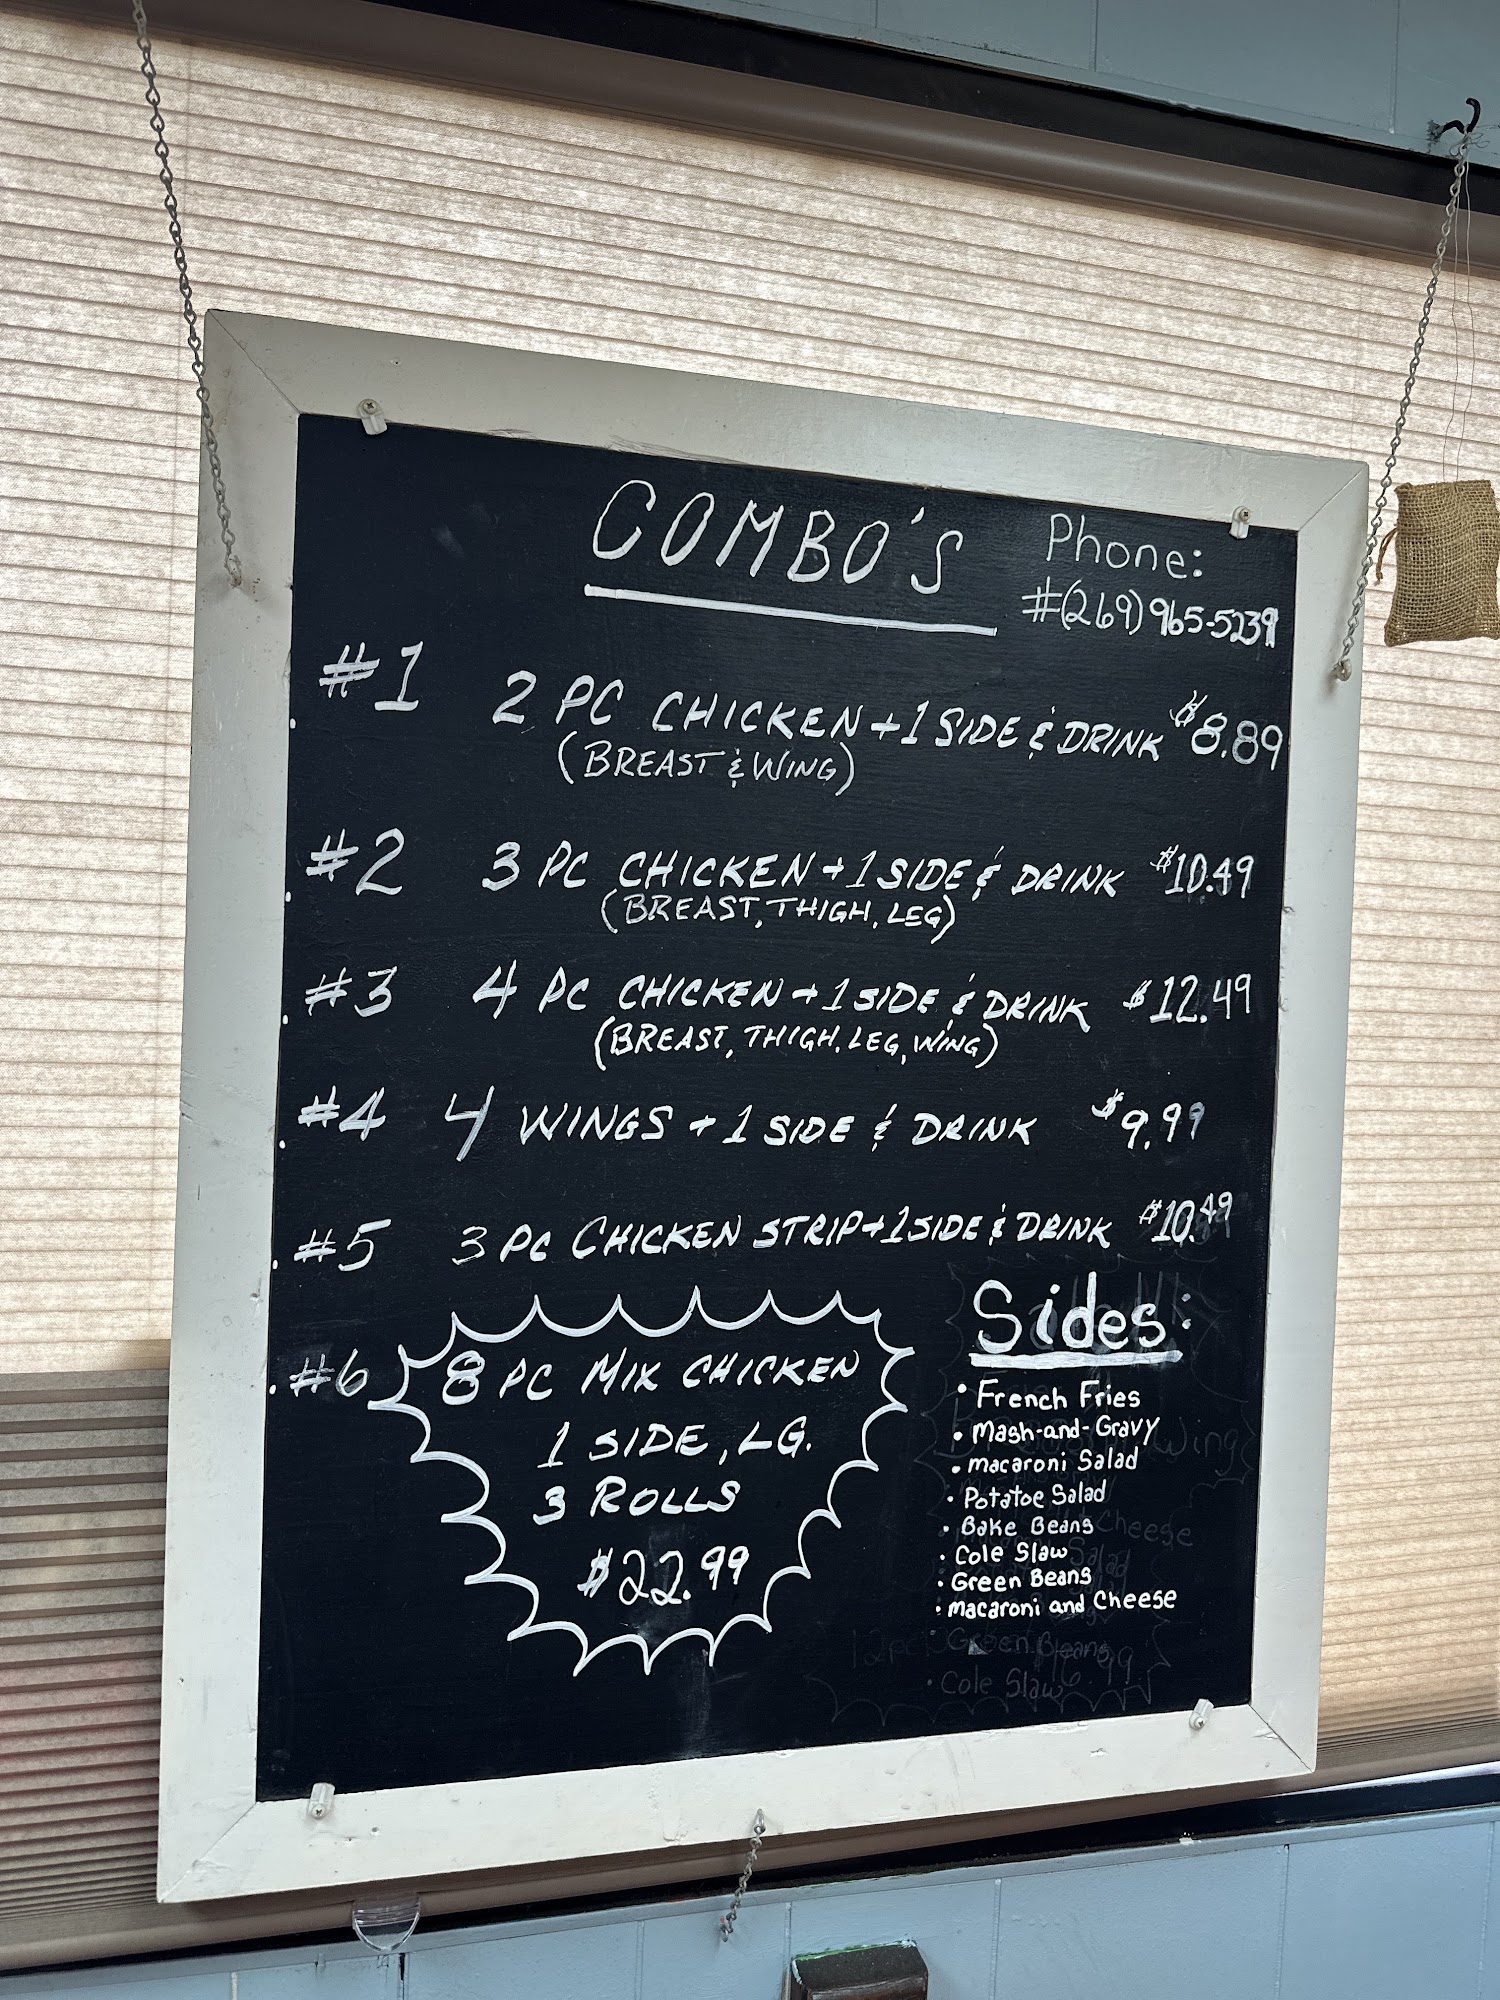 COMBO'S
Phone:
#(269) 965-5239
#1 2 PC CHICKEN + 1 SIDE & DRINK $8.89
(BREAST & WING)
#2 3 PC CHICKEN + 1 SIDE & DRINK $10.49
(BREAST, THIGH, LEG)
#3 4 PC CHICKEN + 1 SIDE & DRINK $12.49
(BREAST, THIGH, LEG, WING)
#4 4 WINGS + 1 SIDE & DRINK $9.99
#5 3 PC CHICKEN STRIP + 1 SIDE & DRINK $10.49
#6 8 PC MIX CHICKEN
1 SIDE, LG.
3 ROLLS
$22.99
Sides:
• French Fries
• Mash-and-Gravy
• Macaroni Salad
• Potatoe Salad
• Bake Beans
• Cole Slaw
• Green Beans
• Macaroni and Cheese
Green Beans
• Cole Slaw